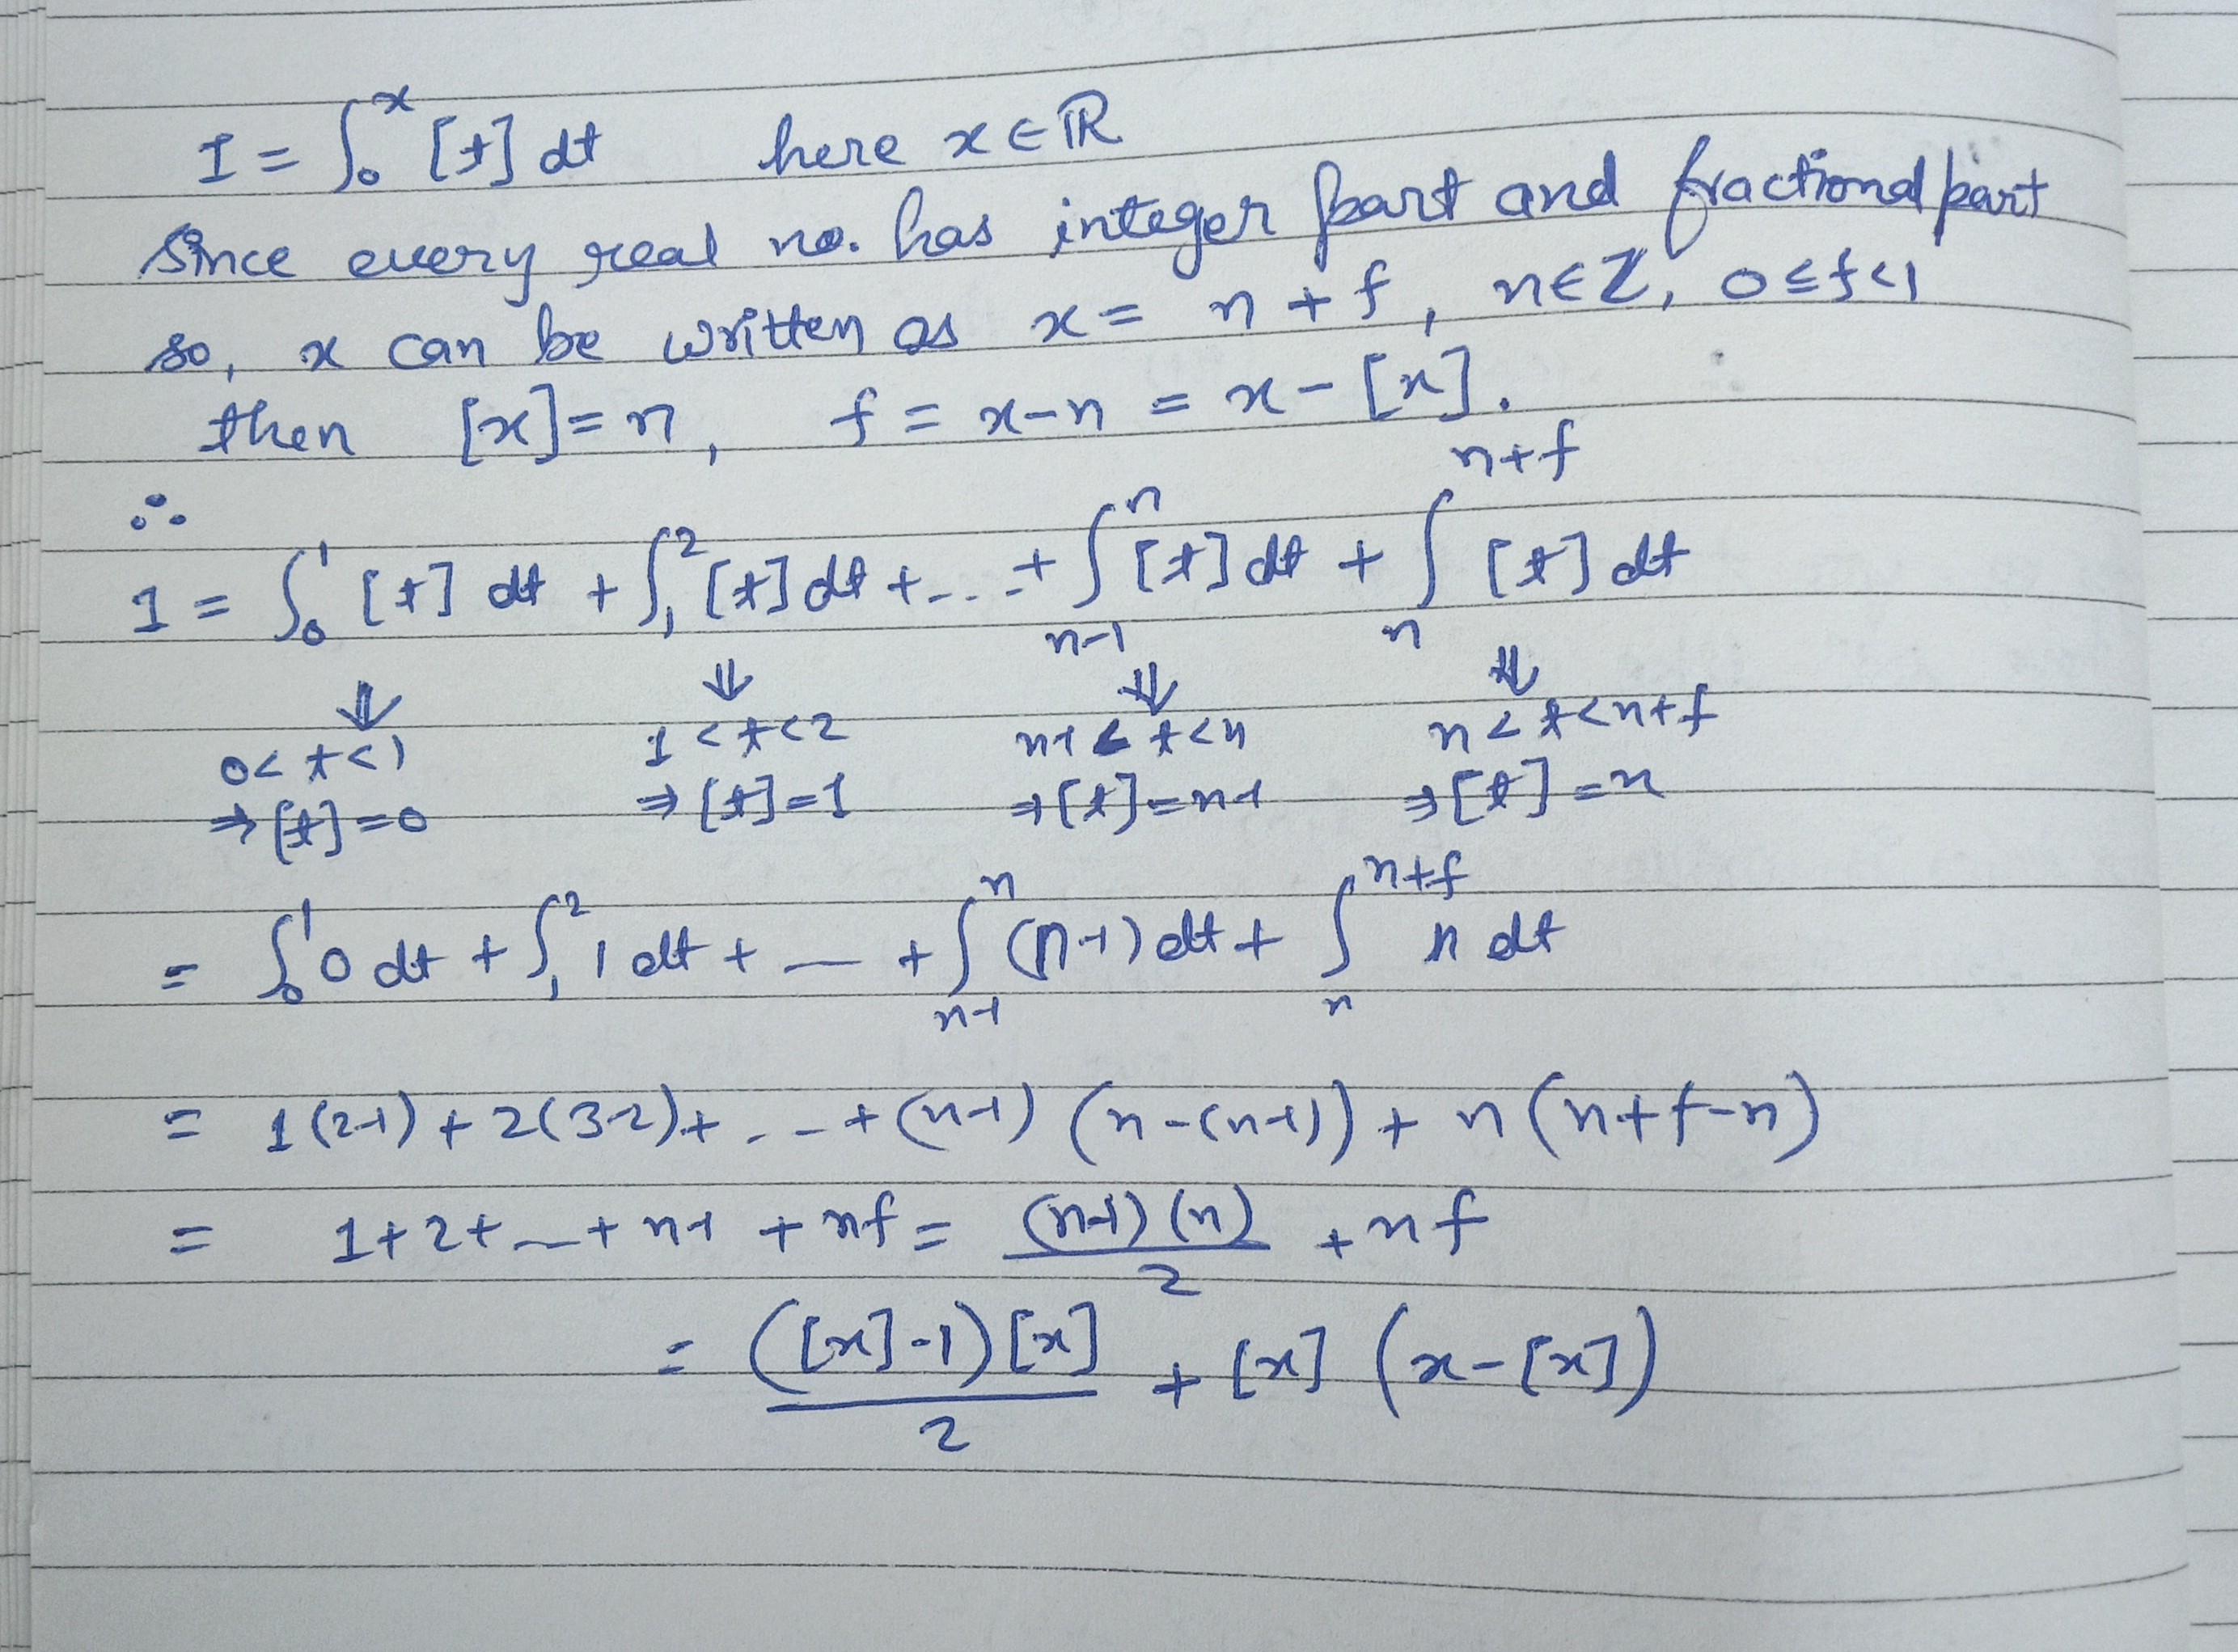 I = ∫₀ˣ [t] dt here x ∈ ℝ
Since every real no. has integer part and fractional part
so, x can be written as x = n + f, n∈Z, 0≤f<1
then [x]=n, f = x-n = x-[x].
∴
I = ∫₀¹ [t] dt + ∫₁² [t] dt + ... + ∫ₙ₋₁ⁿ [t] dt + ∫ₙⁿ⁺ᶠ [t] dt
⇓ ⇓ ⇓ ⇓
0<t<1 1<t<2 n-1<t<n n<t<n+f
⇒[t]=0 ⇒[t]=1 ⇒[t]=n-1 ⇒[t]=n
= ∫₀¹ 0 dt + ∫₁² 1 dt + — + ∫ₙ₋₁ⁿ (n-1) dt + ∫ₙⁿ⁺ᶠ n dt
= 1(2-1) + 2(3-2) + ... + (n-1) (n-(n-1)) + n (n+f-n)
= 1+2+ — + n-1 + nf = (n-1)(n)/2 + nf
= ([x]-1)[x]/2 + [x] (x-[x])